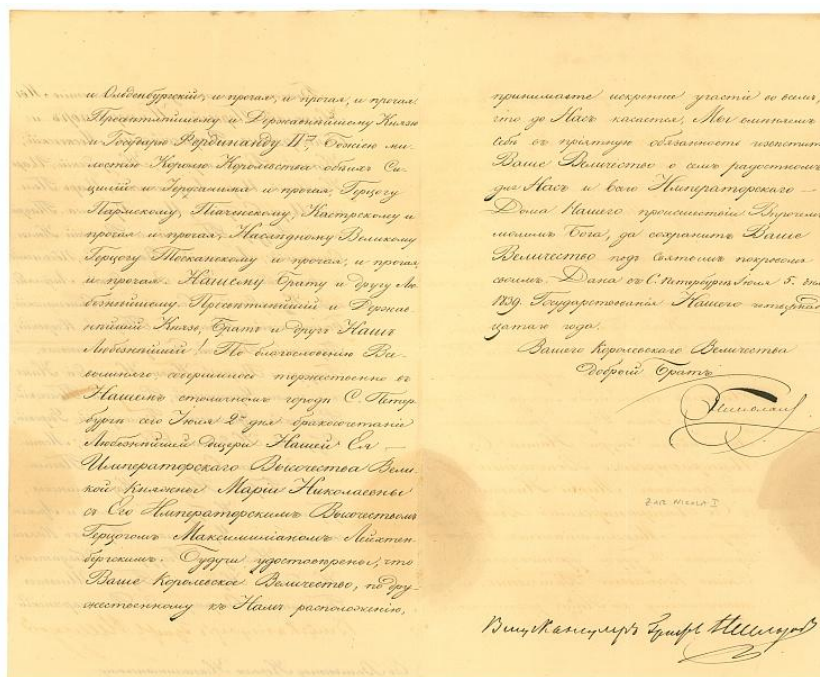 и Ольденбургскій, и прочая, и прочая, и прочая.
Пресвѣтлѣйшему и Державнѣйшему Князю
и Государю Фердинанду IIму, Божіею ми-
лостію Королю Королевства обѣихъ Си-
цилій и Іерусалима и прочая, Герцогу
Пармскому, Піаченскому, Кастрскому и
прочая и прочая, Наслѣдному Великому
Герцогу Тосканскому и прочая, и прочая
и прочая. Нашему Брату и другу Лю-
безнѣйшему. Пресвѣтлѣйшій и Держав-
нѣйшій Князь, Братъ и другъ Нашъ
Любезнѣйшій! По благословенію Все-
вышняго, совершилось торжественно въ
Нашемъ столичномъ городѣ С. Петер-
бургѣ сего Іюля 2го дня бракосочетаніе
Любезнѣйшей дщери Нашей Ея
Императорскаго Высочества Вели-
кой Княжны Маріи Николаевны
съ Его Императорскимъ Высочествомъ
Герцогомъ Максимиліаномъ Лейхтен-
бергскимъ. Будучи удостовѣрены, что
Ваше Королевское Величество, по дру-
жественному къ Намъ расположенію,
принимаете искреннее участіе во всемъ,
что до Насъ касается, Мы вмѣняемъ
Себѣ въ пріятную обязанность извѣстить
Ваше Величество о семъ радостномъ
для Насъ и всего Императорскаго
Дома Нашего происшествіи. Впрочемъ
молимъ Бога, да сохранитъ Ваше
Величество подъ Святымъ покровомъ
своимъ. Дана въ С. Петербургѣ, Іюля 5. дня
1839. Государствованія Нашего четырнад-
цатаго года.
Вашего Королевскаго Величества
добрый Братъ
Николай
Zar Nicola I
Вицеканцлеръ Графъ Нессельродъ